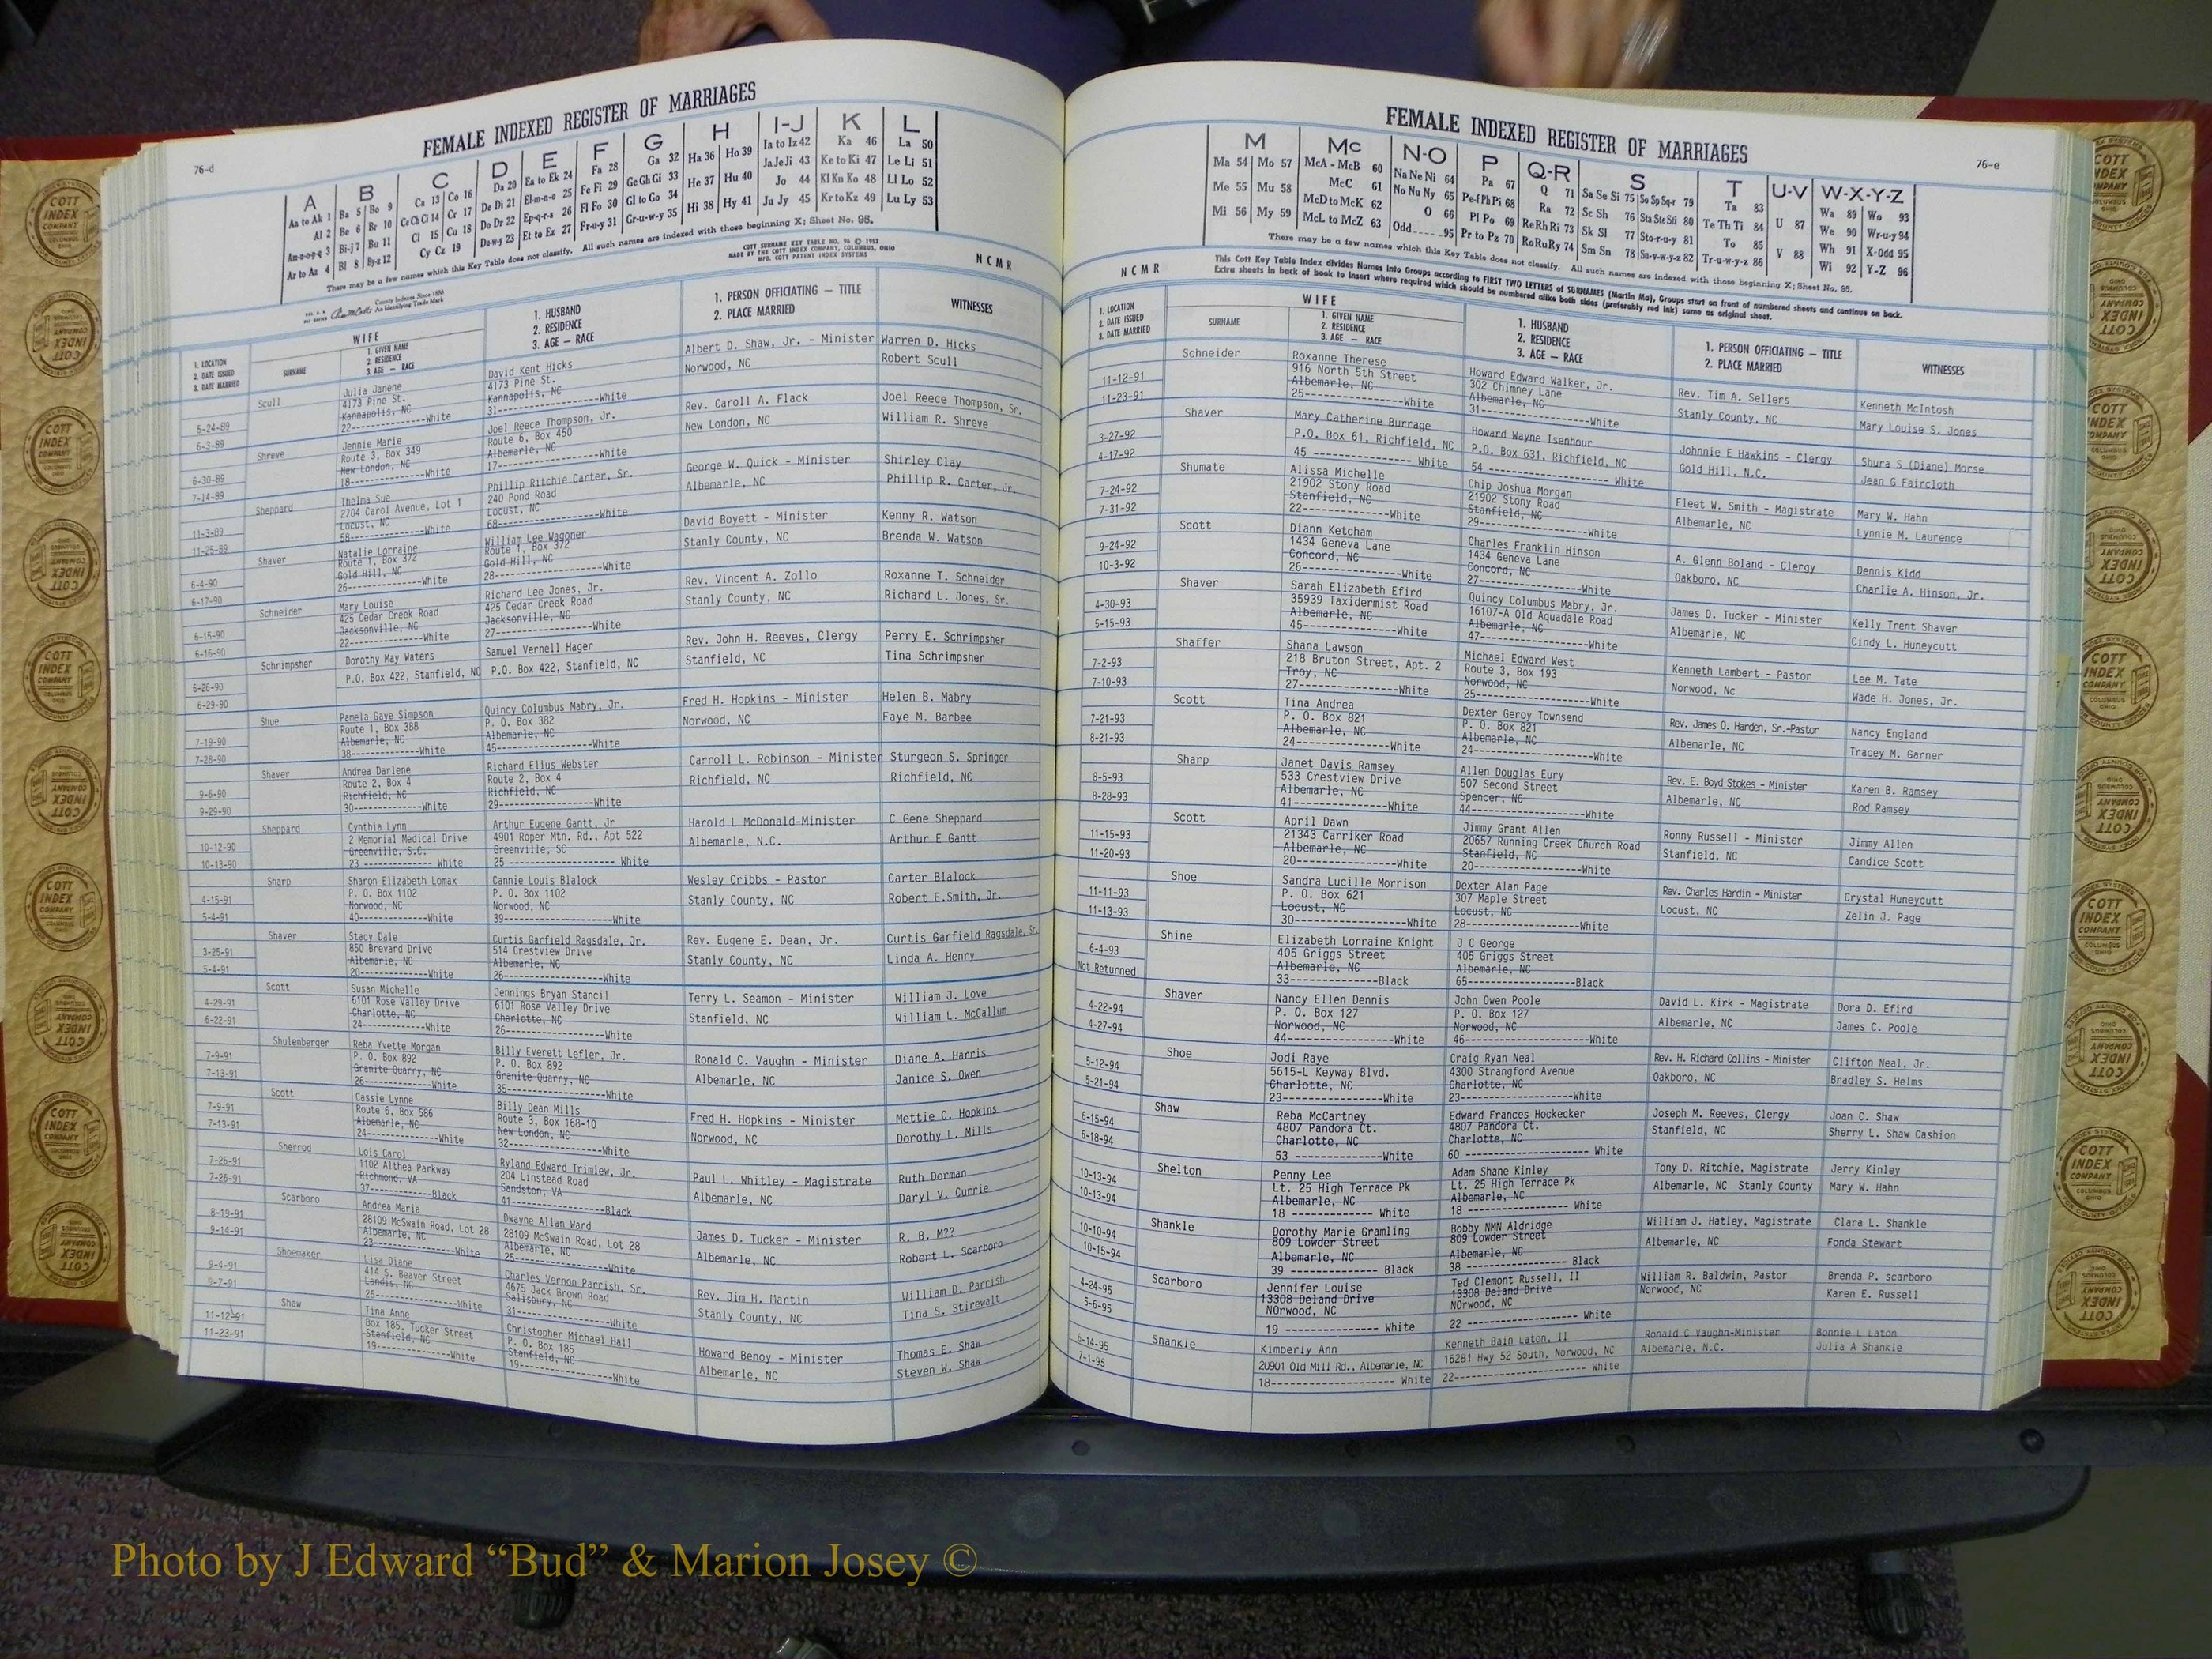 76-d
FEMALE INDEXED REGISTER OF MARRIAGES
A B C D E F G H I-J K L
Aa to Ak 1 Ba 5 Bo 9 Ca 13 Co 16 Da 20 Ea to Ek 24 Fa 28 Ga 32 Ha 36 Ho 39 Ia to Iz 42 Ka 46 La 50
Al 2 Be 6 Br 10 Ce Ch Ci 14 Cr 17 De Di 21 El-m-n-o 25 Fe Fi 29 Ge Gh Gi 33 He 37 Hu 40 Ja Je Ji 43 Ke to Ki 47 Le Li 51
Am-n-o-p-q 3 Bi-j 7 Bu 11 Cl 15 Cu 18 Do Dr 22 Ep-q-r-s 26 Fl Fo 30 Gl to Go 34 Hi 38 Hy 41 Jo 44 Kl Kn Ko 48 Ll Lo 52
Ar to Az 4 Bl 8 By-z 12 Cy Cz 19 Du-w-y 23 Et to Ez 27 Fr-u-y 31 Gr-u-w-y 35 Ju Jy 45 Kr to Kz 49 Lu Ly 53
There may be a few names which this Key Table does not classify. All such names are indexed with those beginning X; Sheet No. 95.
County Indexes Since 1888
An Identifying Trade Mark
COTT SURNAME KEY TABLE NO. 96 © 1952
MADE BY THE COTT INDEX COMPANY, COLUMBUS, OHIO
MFG. COTT PATENT INDEX SYSTEMS
NCMR
1. LOCATION
2. DATE ISSUED
3. DATE MARRIED
WIFE
SURNAME
1. GIVEN NAME
2. RESIDENCE
3. AGE — RACE
1. HUSBAND
2. RESIDENCE
3. AGE — RACE
1. PERSON OFFICIATING — TITLE
2. PLACE MARRIED
WITNESSES
5-24-89 Scull Julia Janene David Kent Hicks Albert D. Shaw, Jr. - Minister Warren D. Hicks
6-3-89 4173 Pine St. 4173 Pine St. Norwood, NC Robert Scull
Kannapolis, NC Kannapolis, NC
22----------White 31----------White
6-30-89 Shreve Jennie Marie Joel Reece Thompson, Jr. Rev. Caroll A. Flack Joel Reece Thompson, Sr.
7-14-89 Route 3, Box 349 Route 6, Box 450 New London, NC William R. Shreve
New London, NC Albemarle, NC
18----------White 17----------White
11-3-89 Sheppard Thelma Sue Phillip Ritchie Carter, Sr. George W. Quick - Minister Shirley Clay
11-25-89 2704 Carol Avenue, Lot 1 240 Pond Road Albemarle, NC Phillip R. Carter, Jr.
Locust, NC Locust, NC
58----------White 68----------White
6-4-90 Shaver Natalie Lorraine William Lee Wagoner David Boyett - Minister Kenny R. Watson
6-17-90 Route 1, Box 372 Route 1, Box 372 Stanly County, NC Brenda W. Watson
Gold Hill, NC Gold Hill, NC
26----------White 28----------White
6-15-90 Schneider Mary Louise Richard Lee Jones, Jr. Rev. Vincent A. Zollo Roxanne T. Schneider
6-16-90 425 Cedar Creek Road 425 Cedar Creek Road Stanly County, NC Richard L. Jones, Sr.
Jacksonville, NC Jacksonville, NC
22----------White 27----------White
6-26-90 Schrimpsher Dorothy May Waters Samuel Vernell Hager Rev. John H. Reeves, Clergy Perry E. Schrimpsher
6-29-90 P.O. Box 422, Stanfield, NC P.O. Box 422, Stanfield, NC Stanfield, NC Tina Schrimpsher
7-19-90 Shue Pamela Gaye Simpson Quincy Columbus Mabry, Jr. Fred H. Hopkins - Minister Helen B. Mabry
7-28-90 Route 1, Box 388 P. O. Box 382 Norwood, NC Faye M. Barbee
Albemarle, NC Albemarle, NC
38----------White 45----------White
9-6-90 Shaver Andrea Darlene Richard Elius Webster Carroll L. Robinson - Minister Sturgeon S. Springer
9-29-90 Route 2, Box 4 Route 2, Box 4 Richfield, NC Richfield, NC
Richfield, NC Richfield, NC
30----------White 29----------White
10-12-90 Sheppard Cynthia Lynn Arthur Eugene Gantt, Jr Harold L McDonald-Minister C Gene Sheppard
10-13-90 2 Memorial Medical Drive 4901 Roper Mtn. Rd., Apt 522 Albemarle, N.C. Arthur E Gantt
Greenville, S.C. Greenville, SC
23 ---------- White 25 ---------- White
4-15-91 Sharp Sharon Elizabeth Lomax Cannie Louis Blalock Wesley Cribbs - Pastor Carter Blalock
5-4-91 P. O. Box 1102 P. O. Box 1102 Stanly County, NC Robert E.Smith, Jr.
Norwood, NC Norwood, NC
40----------White 39----------White
3-25-91 Shaver Stacy Dale Curtis Garfield Ragsdale, Jr. Rev. Eugene E. Dean, Jr. Curtis Garfield Ragsdale, Sr.
5-4-91 850 Brevard Drive 514 Crestview Drive Stanly County, NC Linda A. Henry
Albemarle, NC Albemarle, NC
20----------White 26----------White
4-29-91 Scott Susan Michelle Jennings Bryan Stancil Terry L. Seamon - Minister William J. Love
6-22-91 6101 Rose Valley Drive 6101 Rose Valley Drive Stanfield, NC William L. McCallum
Charlotte, NC Charlotte, NC
24----------White 26----------White
7-9-91 Shulenberger Reba Yvette Morgan Billy Everett Lefler, Jr. Ronald C. Vaughn - Minister Diane A. Harris
7-13-91 P. O. Box 892 P. O. Box 892 Albemarle, NC Janice S. Owen
Granite Quarry, NC Granite Quarry, NC
26----------White 35----------White
7-9-91 Scott Cassie Lynne Billy Dean Mills Fred H. Hopkins - Minister Mettie C. Hopkins
7-13-91 Route 6, Box 586 Route 3, Box 168-10 Norwood, NC Dorothy L. Mills
Albemarle, NC New London, NC
24----------White 32----------White
7-26-91 Sherrod Lois Carol Ryland Edward Trimiew, Jr. Paul L. Whitley - Magistrate Ruth Dorman
7-26-91 1102 Althea Parkway 204 Linstead Road Albemarle, NC Daryl V. Currie
Richmond, VA Sandston, VA
37----------Black 41----------Black
8-19-91 Scarboro Andrea Maria Dwayne Allan Ward James D. Tucker - Minister R. B. M??
9-14-91 28109 McSwain Road, Lot 28 28109 McSwain Road, Lot 28 Albemarle, NC Robert L. Scarboro
Albemarle, NC Albemarle, NC
23----------White 25----------White
9-4-91 Shoemaker Lisa Diane Charles Vernon Parrish, Sr. Rev. Jim H. Martin William D. Parrish
9-7-91 414 S. Beaver Street 4675 Jack Brown Road Stanly County, NC Tina S. Stirewalt
Landis, NC Salisbury, NC
25----------White 31----------White
11-12-91 Shaw Tina Anne Christopher Michael Hall Howard Benoy - Minister Thomas E. Shaw
11-23-91 Box 185, Tucker Street P. O. Box 185 Albemarle, NC Steven W. Shaw
Stanfield, NC Stanfield, NC
19----------White 19----------White
76-e
FEMALE INDEXED REGISTER OF MARRIAGES
M Mc N-O P Q-R S T U-V W-X-Y-Z
Ma 54 Mo 57 McA - McB 60 Na Ne Ni 64 Pa 67 Q 71 Sa Se Si 75 So Sp Sq-r 79 Ta 83 U 87 Wa 89 Wo 93
Me 55 Mu 58 McC 61 No Nu Ny 65 Pe-f Ph Pi 68 Ra 72 Sc Sh 76 Sta Ste Sti 80 Te Th Ti 84 V 88 We 90 Wr-u-y 94
Mi 56 My 59 McD to McK 62 O 66 Pl Po 69 Re Rh Ri 73 Sk Sl 77 Sto-r-u-y 81 To 85 Wh 91 X-Odd 95
McL to McZ 63 Odd 95 Pr to Pz 70 Ro Ru Ry 74 Sm Sn 78 Su-v-w-y-z 82 Tr-u-w-y-z 86 Wi 92 Y-Z 96
There may be a few names which this Key Table does not classify. All such names are indexed with those beginning X; Sheet No. 95.
This Cott Key Table Index divides Names into Groups according to FIRST TWO LETTERS of SURNAMES (Martin Ma), Groups start on front of numbered sheets and continue on back.
Extra sheets in back of book to insert where required which should be numbered alike both sides (preferably red ink) same as original sheet.
NCMR
1. LOCATION
2. DATE ISSUED
3. DATE MARRIED
WIFE
SURNAME
1. GIVEN NAME
2. RESIDENCE
3. AGE — RACE
1. HUSBAND
2. RESIDENCE
3. AGE — RACE
1. PERSON OFFICIATING — TITLE
2. PLACE MARRIED
WITNESSES
11-12-91 Schneider Roxanne Therese Howard Edward Walker, Jr. Rev. Tim A. Sellers Kenneth McIntosh
11-23-91 916 North 5th Street 302 Chimney Lane Stanly County, NC Mary Louise S. Jones
Albemarle, NC Albemarle, NC
25----------White 31----------White
3-27-92 Shaver Mary Catherine Burrage Howard Wayne Isenhour Johnnie E Hawkins - Clergy Shura S (Diane) Morse
4-17-92 P.O. Box 61, Richfield, NC P.O. Box 631, Richfield, NC Gold Hill, N.C. Jean G Faircloth
45 ---------- White 54 ---------- White
7-24-92 Shumate Alissa Michelle Chip Joshua Morgan Fleet W. Smith - Magistrate Mary W. Hahn
7-31-92 21902 Stony Road 21902 Stony Road Albemarle, NC Lynnie M. Laurence
Stanfield, NC Stanfield, NC
22----------White 29----------White
9-24-92 Scott Diann Ketcham Charles Franklin Hinson A. Glenn Boland - Clergy Dennis Kidd
10-3-92 1434 Geneva Lane 1434 Geneva Lane Oakboro, NC Charlie A. Hinson, Jr.
Concord, NC Concord, NC
26----------White 27----------White
4-30-93 Shaver Sarah Elizabeth Efird Quincy Columbus Mabry, Jr. James D. Tucker - Minister Kelly Trent Shaver
5-15-93 35939 Taxidermist Road 16107-A Old Aquadale Road Albemarle, NC Cindy L. Huneycutt
Albemarle, NC Albemarle, NC
45----------White 47----------White
7-2-93 Shaffer Shana Lawson Michael Edward West Kenneth Lambert - Pastor Lee M. Tate
7-10-93 218 Bruton Street, Apt. 2 Route 3, Box 193 Norwood, NC Wade H. Jones, Jr.
Troy, NC Norwood, NC
27----------White 25----------White
7-21-93 Scott Tina Andrea Dexter Geroy Townsend Rev. James O. Harden, Sr.-Pastor Nancy England
8-21-93 P. O. Box 821 P. O. Box 821 Albemarle, NC Tracey M. Garner
Albemarle, NC Albemarle, NC
24----------White 24----------White
8-5-93 Sharp Janet Davis Ramsey Allen Douglas Eury Rev. E. Boyd Stokes - Minister Karen B. Ramsey
8-28-93 533 Crestview Drive 507 Second Street Albemarle, NC Rod Ramsey
Albemarle, NC Spencer, NC
41----------White 44----------White
11-15-93 Scott April Dawn Jimmy Grant Allen Ronny Russell - Minister Jimmy Allen
11-20-93 21343 Carriker Road 20657 Running Creek Church Road Stanfield, NC Candice Scott
Albemarle, NC Stanfield, NC
20----------White 20----------White
11-11-93 Shoe Sandra Lucille Morrison Dexter Alan Page Rev. Charles Hardin - Minister Crystal Huneycutt
11-13-93 P. O. Box 621 307 Maple Street Locust, NC Zelin J. Page
Locust, NC Locust, NC
30----------White 28----------White
6-4-93 Shine Elizabeth Lorraine Knight J C George
Not Returned 405 Griggs Street 405 Griggs Street
Albemarle, NC Albemarle, NC
33----------Black 65----------Black
4-22-94 Shaver Nancy Ellen Dennis John Owen Poole David L. Kirk - Magistrate Dora D. Efird
4-27-94 P. O. Box 127 P. O. Box 127 Albemarle, NC James C. Poole
Norwood, NC Norwood, NC
44----------White 46----------White
5-12-94 Shoe Jodi Raye Craig Ryan Neal Rev. H. Richard Collins - Minister Clifton Neal, Jr.
5-21-94 5615-L Keyway Blvd. 4300 Strangford Avenue Oakboro, NC Bradley S. Helms
Charlotte, NC Charlotte, NC
23----------White 23----------White
6-15-94 Shaw Reba McCartney Edward Frances Hockecker Joseph M. Reeves, Clergy Joan C. Shaw
6-18-94 4807 Pandora Ct. 4807 Pandora Ct. Stanfield, NC Sherry L. Shaw Cashion
Charlotte, NC Charlotte, NC
53 ----------White 60 ---------- White
10-13-94 Shelton Penny Lee Adam Shane Kinley Tony D. Ritchie, Magistrate Jerry Kinley
10-13-94 Lt. 25 High Terrace Pk Lt. 25 High Terrace Pk Albemarle, NC Stanly County Mary W. Hahn
Albemarle, NC Albemarle, NC
18 ---------- White 18 ---------- White
10-10-94 Shankle Dorothy Marie Gramling Bobby NMN Aldridge William J. Hatley, Magistrate Clara L. Shankle
10-15-94 809 Lowder Street 809 Lowder Street Albemarle, NC Fonda Stewart
Albemarle, NC Albemarle, NC
39 ---------- Black 38 ---------- Black
4-24-95 Scarboro Jennifer Louise Ted Clement Russell, II William R. Baldwin, Pastor Brenda P. scarboro
5-6-95 13308 Deland Drive 13308 Deland Drive Norwood, NC Karen E. Russell
NOrwood, NC NOrwood, NC
19 ---------- White 22 ---------- White
6-14-95 Shankle Kimberly Ann Kenneth Bain Laton, II Ronald C Vaughn-Minister Bonnie L Laton
7-1-95 20901 Old Mill Rd., Albemarle, NC 16281 Hwy 52 South, Norwood, NC Albemarle, N.C. Julia A Shankle
18---------- White 22---------- White
COTT INDEX COMPANY COLUMBUS OHIO
Photo by J Edward “Bud” & Marion Josey ©